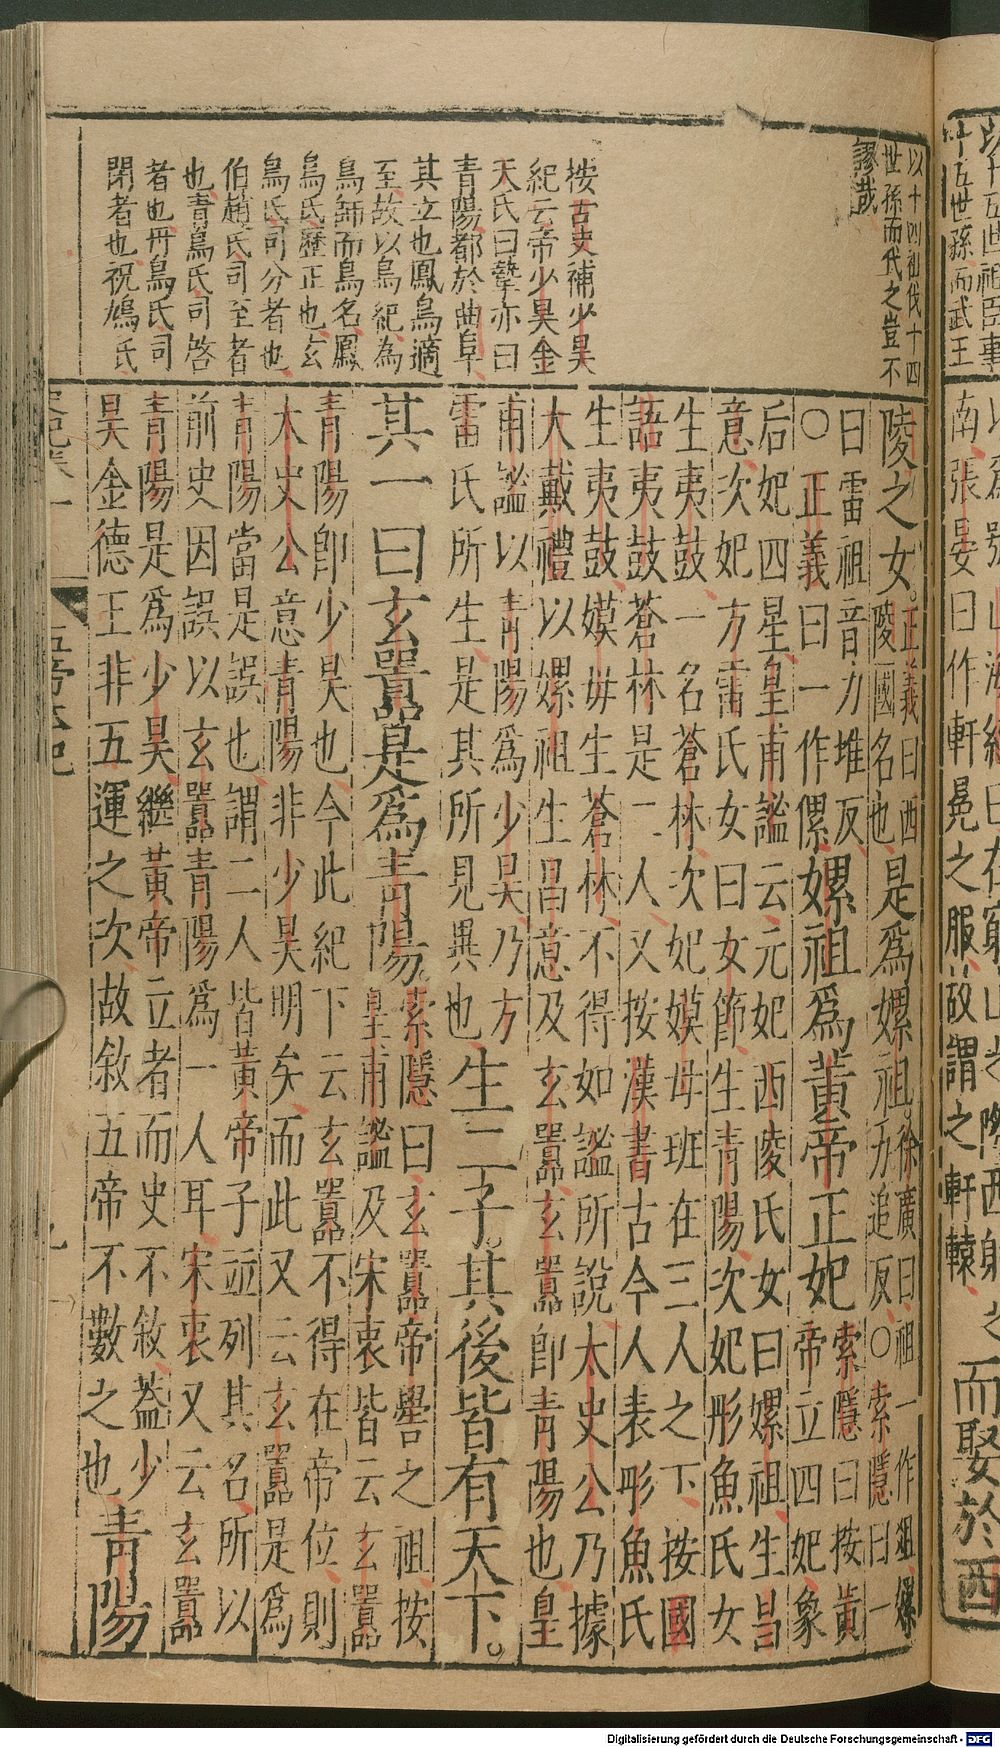 十五世孫而武王
以為號山海經曰在窮山之際西射之
南張晏曰作軒冕之服故謂之軒轅
而娶於西
以十四祖伐十四
世孫而代之豈不
謬哉
按古史補少昊
紀云帝少昊金
天氏曰摯亦曰
青陽都於曲阜
其立也鳳鳥適
至故以鳥紀為
鳥師而鳥名鳳
鳥氏歷正也玄
鳥氏司分者也
伯趙氏司至者
也青鳥氏司啓
者也丹鳥氏司
閉者也祝鳩氏
陵之女。正義曰西
陵國名也是為嫘祖。徐廣曰祖一作俎嫘
力追反○索隱曰一
曰雷祖音力堆反
○正義曰一作傫嫘祖為黃帝正妃索隱曰按黃
帝立四妃象
后妃四星皇甫謐云元妃西陵氏女曰嫘祖生昌
意次妃方雷氏女曰女節生青陽次妃彤魚氏女
生夷鼓一名蒼林次妃嫫母班在三人之下按國
語夷鼓蒼林是二人又按漢書古今人表彤魚氏
生夷鼓嫫母生蒼林不得如謐所說太史公乃據
大戴禮以嫘祖生昌意及玄囂玄囂即青陽也皇
甫謐以青陽為少昊乃方
雷氏所生是其所見異也生二子。其後皆有天下。
其一曰玄囂是為青陽。索隱曰玄囂帝嚳之祖按
皇甫謐及宋衷皆云玄囂
青陽即少昊也今此紀下云玄囂不得在帝位則
太史公意青陽非少昊明矣而此又云玄囂是為
青陽當是誤也謂二人皆黃帝子並列其名所以
前史因誤以玄囂青陽為一人耳宋衷又云玄囂
青陽是為少昊繼黃帝立者而史不敘蓋少
昊金德王非五運之次故敘五帝不數之也青陽
Digitalisierung gefördert durch die Deutsche Forschungsgemeinschaft - DFG